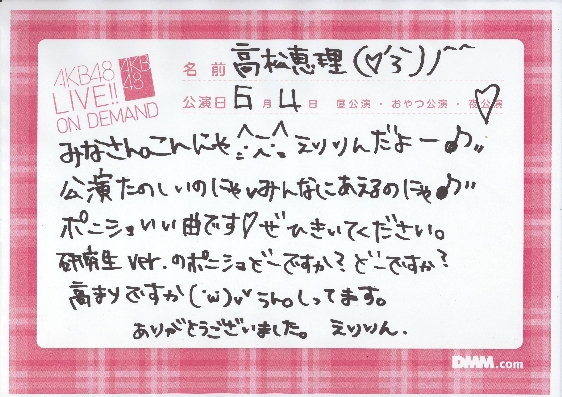 AKB48
LIVE!!
ON DEMAND
AKB
48
名前 高松恵理(♡'3`)ノ⌒⌒
公演日 6月4日 昼公演・おやつ公演・夜公演
みなさん。こんにゃ えりりんだよー♪"
公演たのしいのにゃ、みんなにあえるのにゃ♪"
ポニショいい曲です♡ぜひきいてください。
研究生ver.のポニショどーですか?どーですか?
高まりですか(˙ω)v うん。しってます。
ありがとうございました。 えりりん.
DMM.com